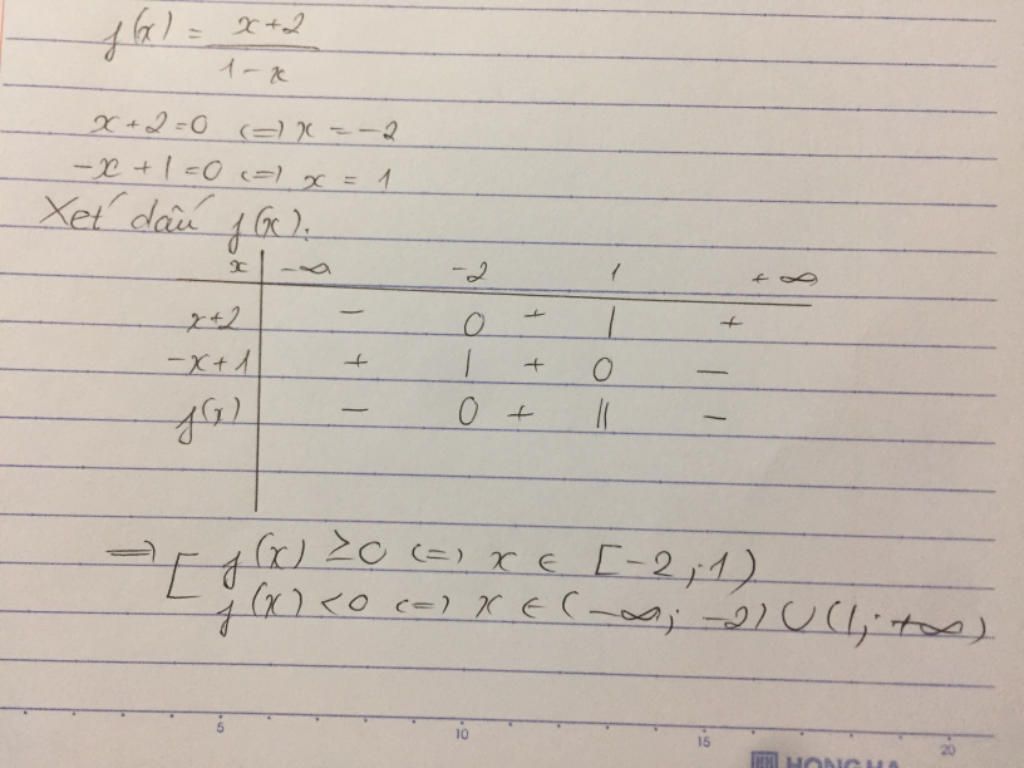 f(x) = x+2
1-x
x+2=0 <=> x = -2
-x+1=0 <=> x = 1
Xét dấu f(x).
x -∞ -2 1 +∞
x+2 - 0 + | +
-x+1 + | + 0 -
f(x) - 0 + || -
=> [ f(x) ≥0 <=> x ∈ [-2;1)
f(x) <0 <=> x ∈ (-∞; -2) ∪ (1; +∞)
5 10 15 20
HONG HA